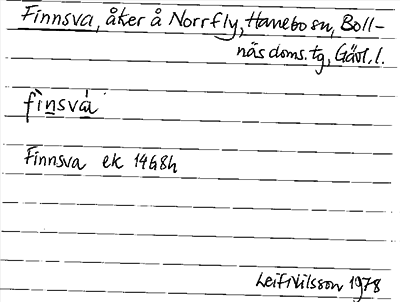 Finnsva, åker å Norrfly, Hanebo sn, Boll-
näs doms. tg, Gävl. l.
fìnsvá
Finnsva ek 14G8h
Leif Nilsson 1978